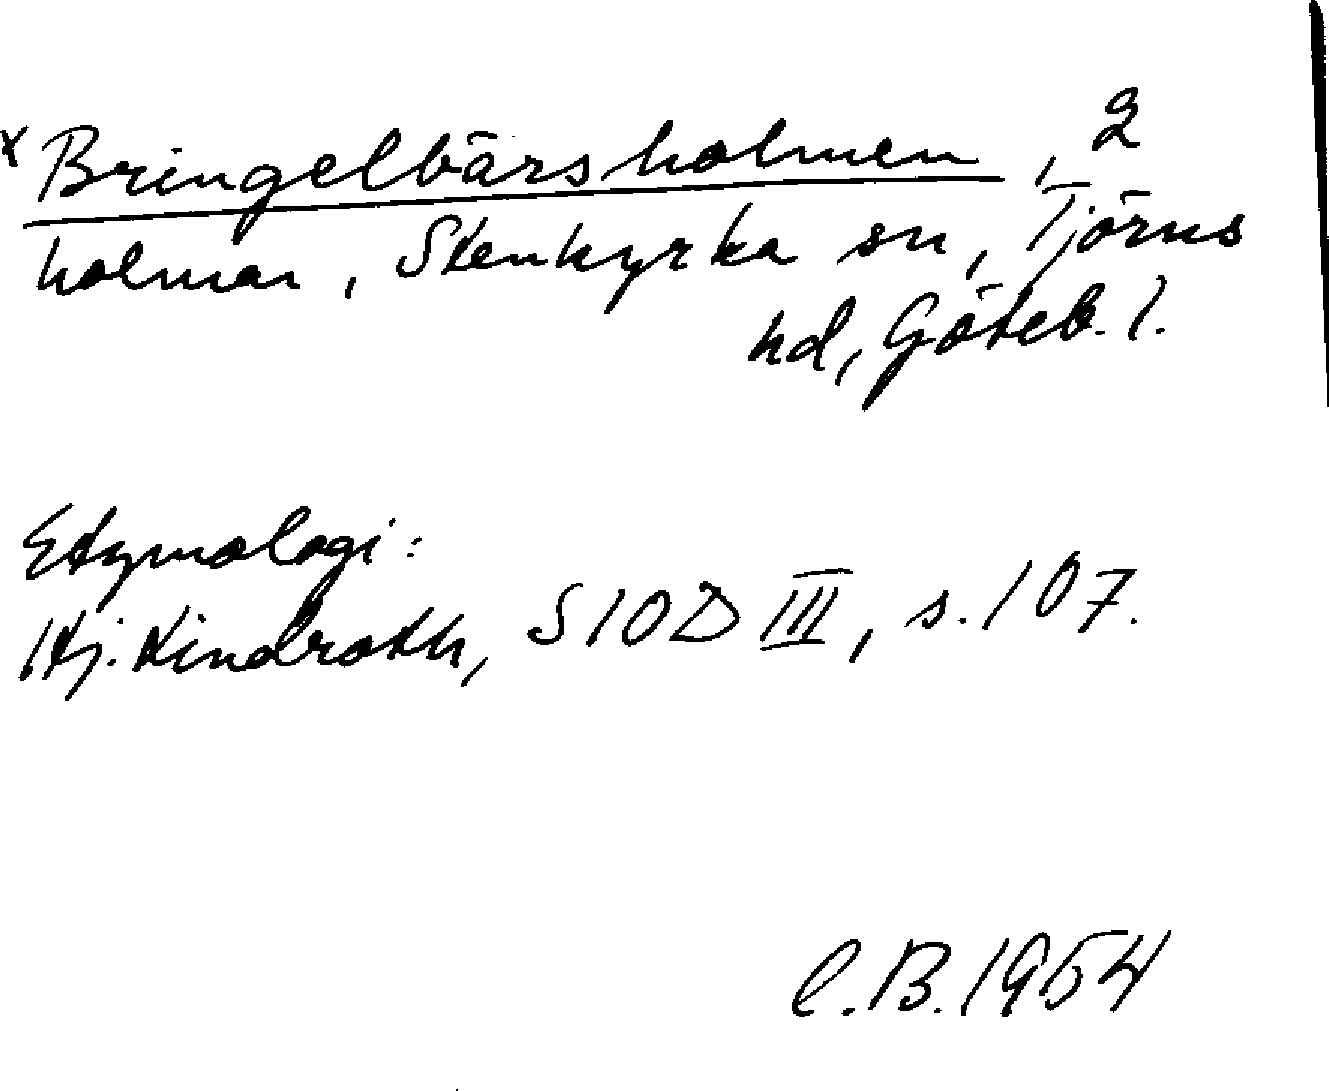 x Bringelbärsholmen, 2
holmar, Stenkyrka sn, Tjörns
hd, Göteb. l.
Etymologi:
Hj. Lindroth, SIOD III, s. 107.
C.B. 1954